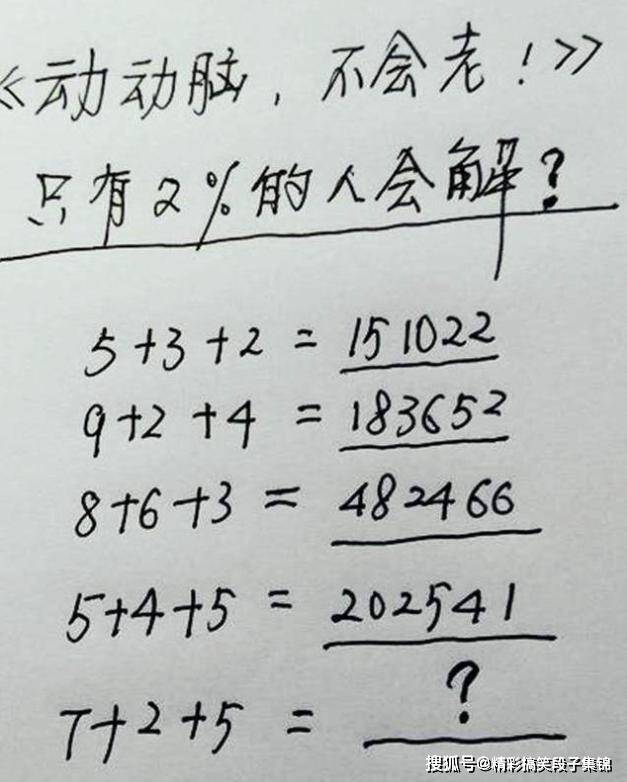 《动动脑，不会老！》
只有2%的人会解？
5+3+2 = 151022
9+2+4 = 183652
8+6+3 = 482466
5+4+5 = 202541
7+2+5 = ?
搜狐号@精彩搞笑段子集锦